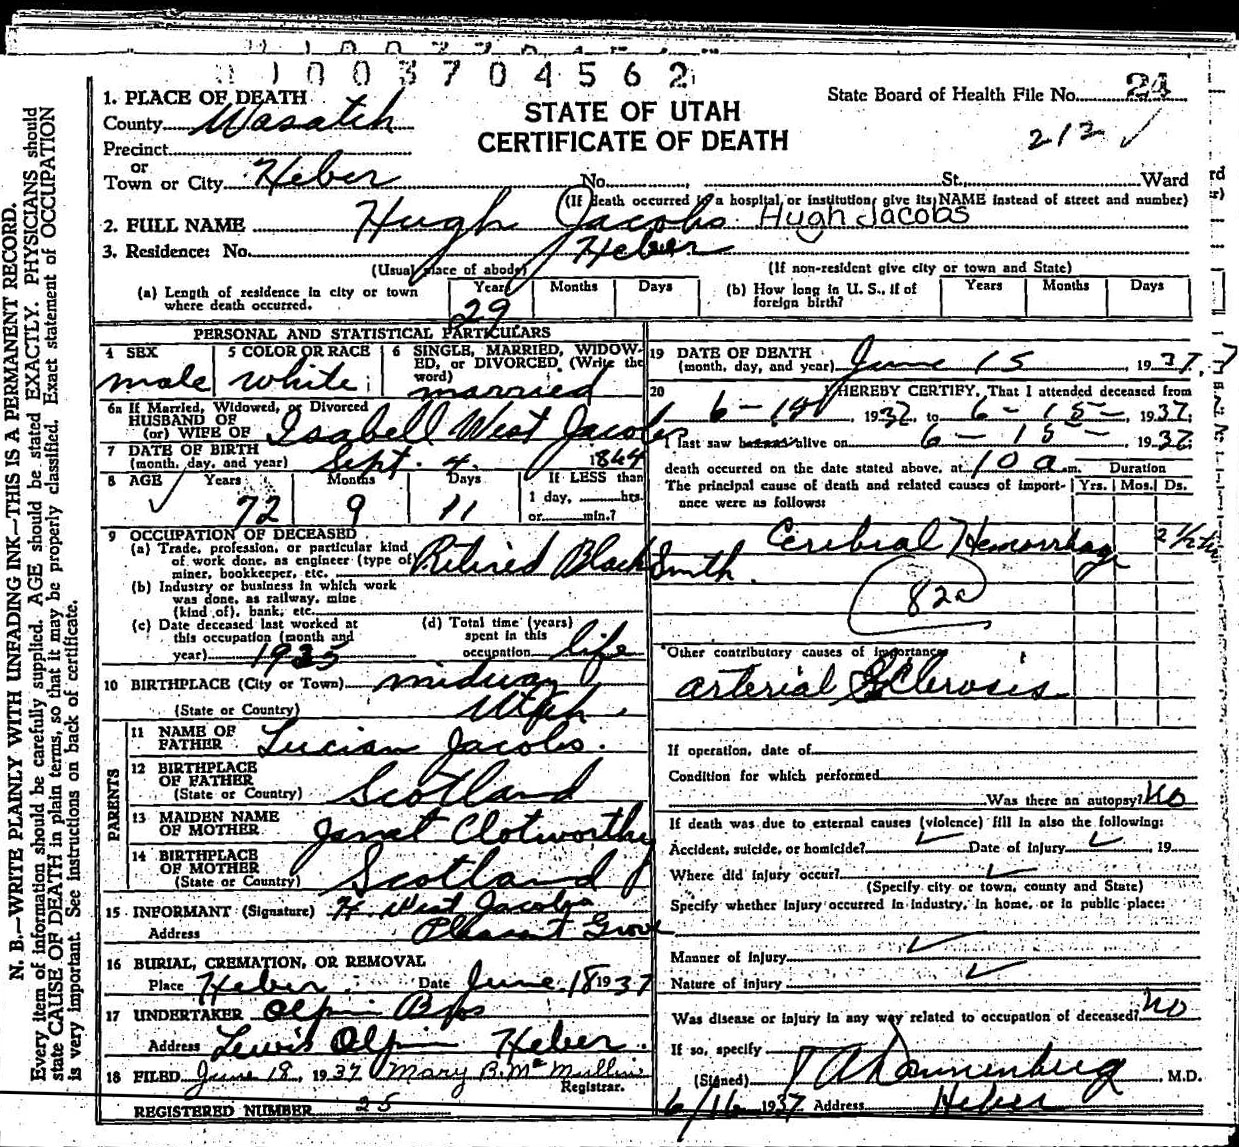 1 1 0 0 3 7 0 4 5 6 2
1. PLACE OF DEATH
County Wasatch
Precinct
or
Town or City Heber No. St. Ward
STATE OF UTAH
CERTIFICATE OF DEATH
State Board of Health File No. 24
212 ✓
(If death occurred in a hospital or institution, give its NAME instead of street and number)
2. FULL NAME Hugh Jacobs Hugh Jacobs
3. Residence: No. Heber
(Usual place of abode) (If non-resident give city or town and State)
(a) Length of residence in city or town where death occurred. Years 29 Months Days
(b) How long in U. S., if of foreign birth? Years Months Days
PERSONAL AND STATISTICAL PARTICULARS
4 SEX male
5 COLOR OR RACE white
6 SINGLE, MARRIED, WIDOWED, or DIVORCED (Write the word) married
6a If Married, Widowed, or Divorced
HUSBAND OF
(or) WIFE OF Isabell West Jacobs
7 DATE OF BIRTH
(month, day, and year) Sept. 4. 1864
8 AGE ✓ Years 72 Months 9 Days 11
If LESS than
1 day, hrs.
or min.?
9 OCCUPATION OF DECEASED
(a) Trade, profession, or particular kind
of work done, as engineer (type of
miner, bookkeeper, etc. Retired Black Smith
(b) Industry or business in which work
was done, as railway, mine
(kind of), bank, etc.
(c) Date deceased last worked at
this occupation (month and
year) 1935
(d) Total time (years)
spent in this
occupation life
10 BIRTHPLACE (City or Town) midway
(State or Country) Utah
PARENTS
11 NAME OF
FATHER Lucian Jacobs.
12 BIRTHPLACE
OF FATHER
(State or Country) Scotland
13 MAIDEN NAME
OF MOTHER Janet Clotworthy
14 BIRTHPLACE
OF MOTHER
(State or Country) Scotland
15 INFORMANT (Signature) H. West Jacobs
Address Pleasant Grove
16 BURIAL, CREMATION, OR REMOVAL
Place Heber. Date June 18 1937
17 UNDERTAKER Olpin Bros
Address Lewis Olpin Heber.
18 FILED June 18, 1937 Mary B. McMullin
Registrar.
REGISTERED NUMBER 25
19 DATE OF DEATH
(month, day, and year) June 15, 1937.
20 I HEREBY CERTIFY, That I attended deceased from
1937, to 6-15- 1937:
I last saw alive on 6-15- 1937:
death occurred on the date stated above, at 10 a m. Duration
The principal cause of death and related causes of importance were as follows: Yrs. Mos. Ds.
Cerebral Hemorrhage
82a
Other contributory causes of importance
arterial Sclerosis
If operation, date of
Condition for which performed
Was there an autopsy? no
If death was due to external causes (violence) fill in also the following:
Accident, suicide, or homicide? ✓ Date of injury ✓ , 19
Where did injury occur? ✓
(Specify city or town, county and State)
Specify whether injury occurred in industry, in home, or in public place:
✓
Manner of injury
Nature of injury ✓
Was disease or injury in any way related to occupation of deceased? no
If so, specify
(Signed) Dannenberg , M.D.
6/16 1937 Address Heber
N. B.—WRITE PLAINLY WITH UNFADING INK—THIS IS A PERMANENT RECORD.
Every item of information should be carefully supplied. AGE should be stated EXACTLY. PHYSICIANS should
state CAUSE OF DEATH in plain terms, so that it may be properly classified. Exact statement of OCCUPATION
is very important. See instructions on back of certificate.